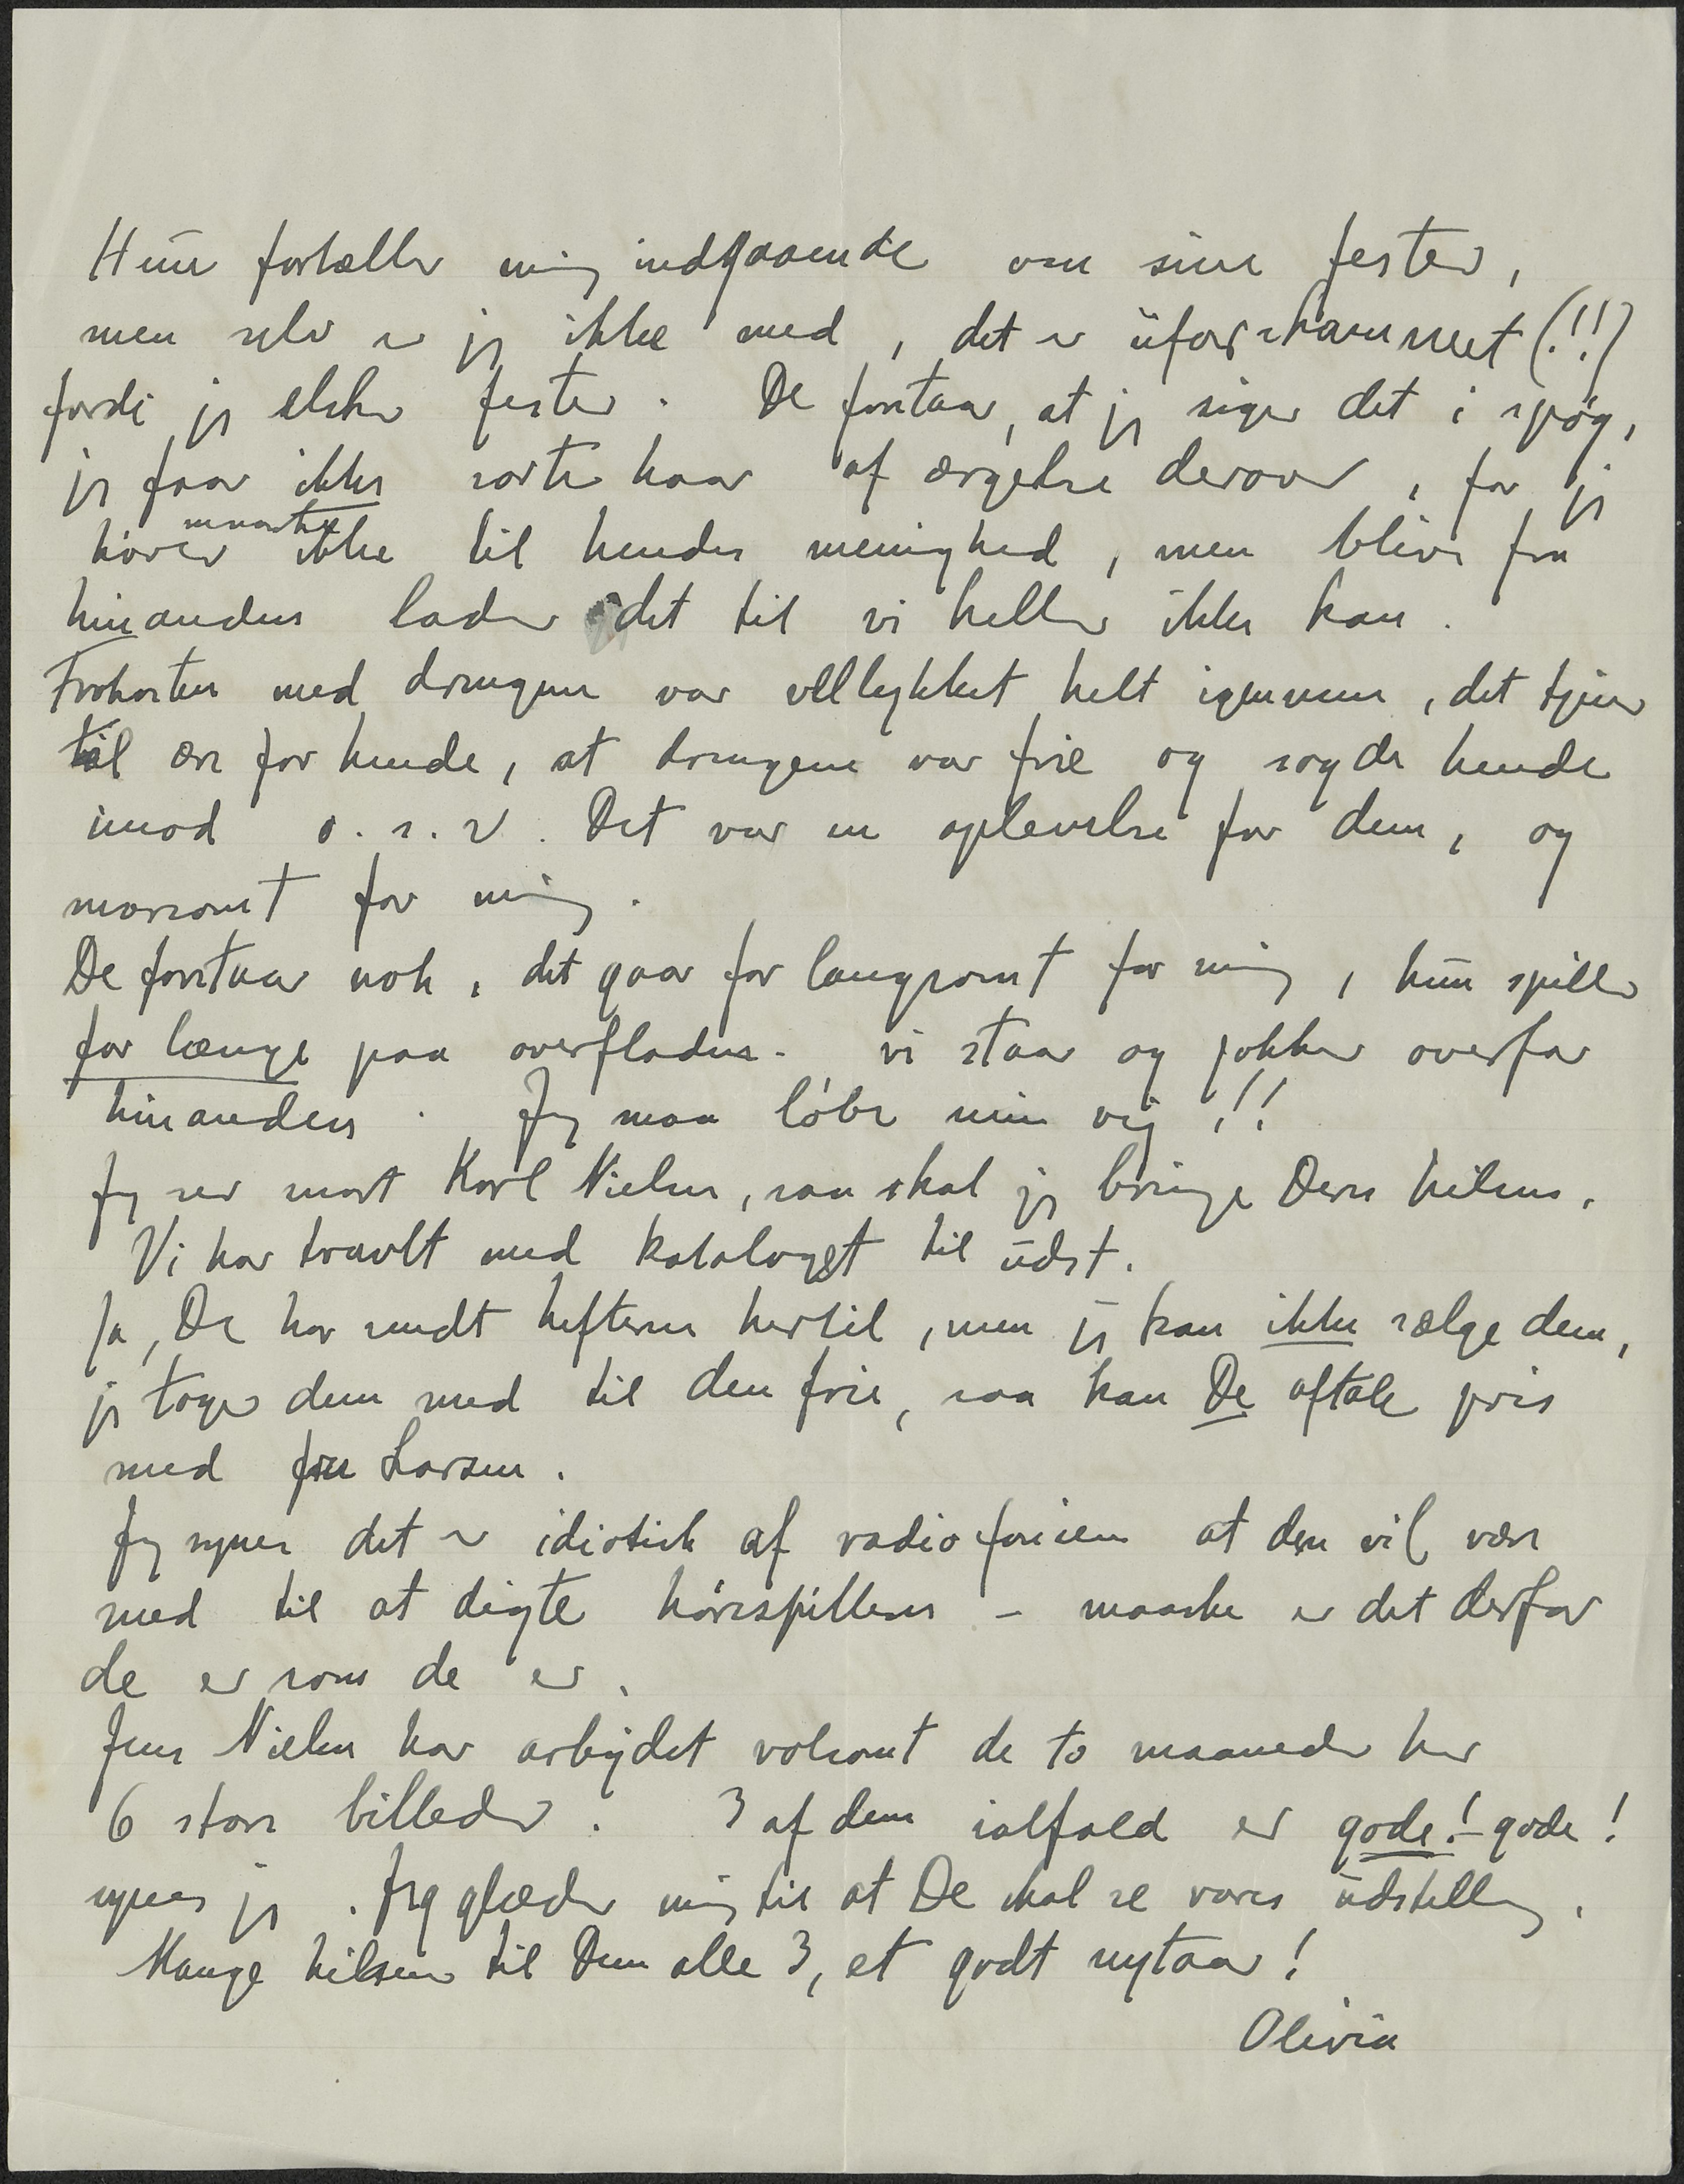 Hun fortæller mig indgaaende om sine fester,
men selv er jeg ikke med, det er uforskammet (!!)
fordi jeg elsker fester. De forstaar, at jeg siger det i spøg,
jeg faar ikke sorte haar af ærgelse derover, for jeg
hører ikke til hendes menighed, men blive fra
hinanden lader det til vi heller ikke kan.
Frokosten med drengene var vellykket helt igennem, det tjener
til ære for hende, at drengene var frie og sagde hende
imod o.s.v. Det var en oplevelse for dem, og
morsomt for mig.
De forstaar nok, det gaar for langsomt for mig, hun spiller
for længe paa overfladen. vi staar og jokker overfor
hinanden. Jeg maa løbe min vej!!
Jeg ser snart Karl Nielsen, saa skal jeg bringe Deres hilsen.
Vi har travlt med kataloget til udst.
Ja, De har sendt hefterne hertil, men jeg kan ikke sælge dem,
jeg tager dem med til den frie, saa kan De aftale pris
med fru Larsen.
Jeg synes det er idiotisk af radiofonien at den vil være
med til at digte hørespillene - maaske er det derfor
de er som de er.
Jens Nielsen har arbejdet voldsomt de to maaneder her
6 store billeder. 3 af dem ialfald er gode! - gode!
synes jeg. Jeg glæder mig til at De skal se vores udstilling.
Mange hilsener til Dem alle 3, et godt nytaar!
Olivia